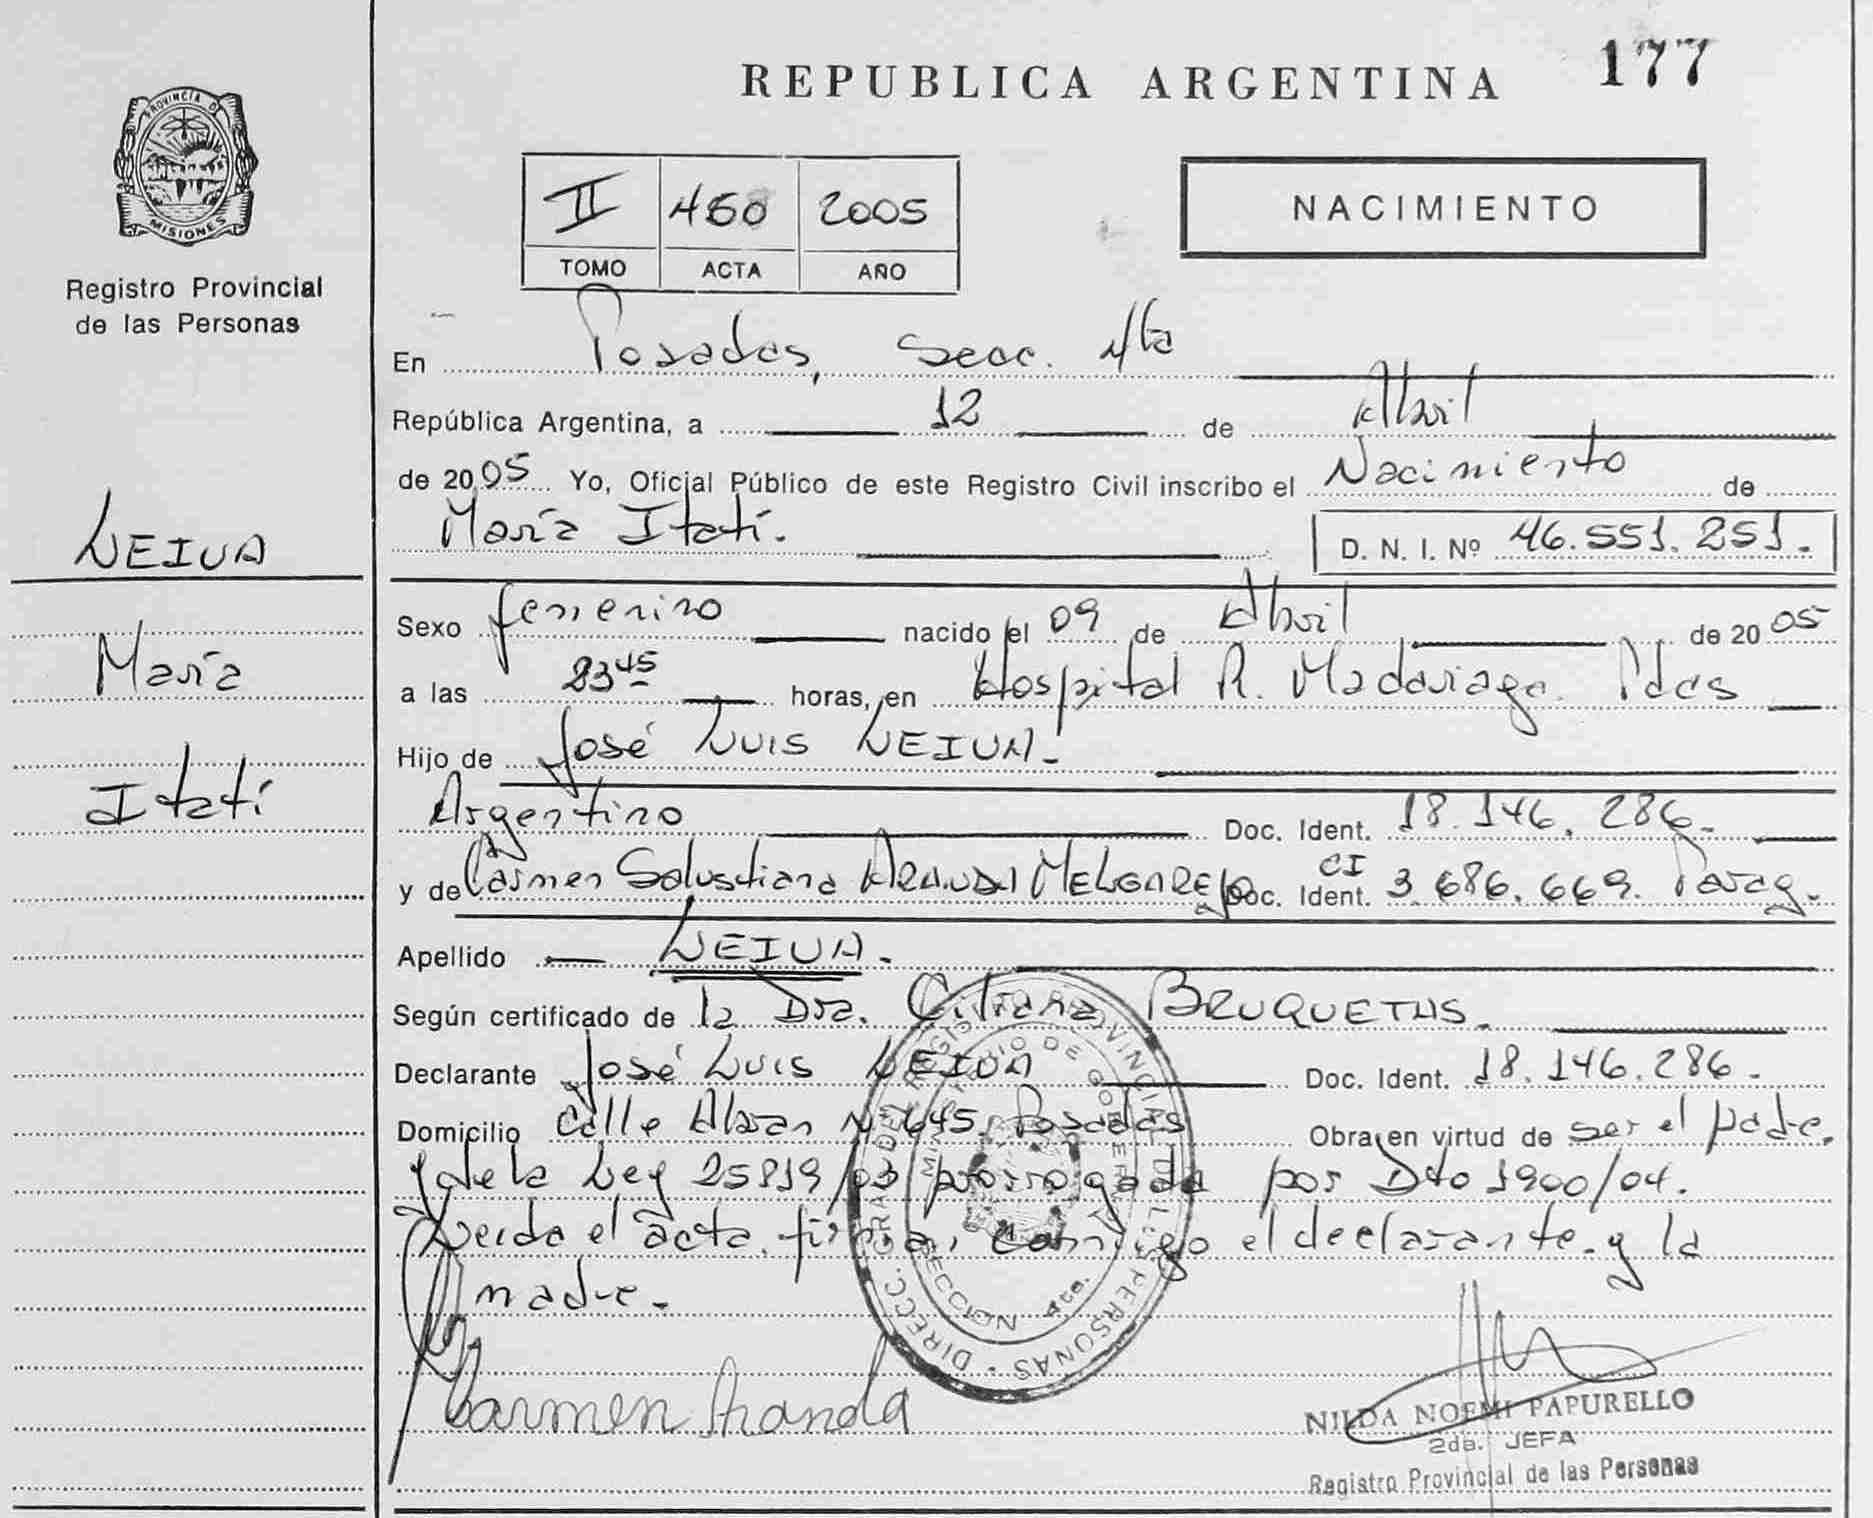 177
REPUBLICA ARGENTINA
PROVINCIA DE
MISIONES
Registro Provincial
de las Personas
II 460 2005
TOMO ACTA AÑO
NACIMIENTO
LEIVA
María
Itatí
En Posadas, Secc. 4ta
República Argentina, a 12 de Abril
de 2005 Yo, Oficial Público de este Registro Civil inscribo el Nacimiento de
María Itatí. D. N. I. Nº 46.551.251.
Sexo femenino nacido el 09 de Abril de 2005
a las 23 45 horas, en Hospital R. Madariaga. Pdas
Hijo de José Luis LEIVA.
Argentino Doc. Ident. 18.146.286.
y de Carmen Salustiana MELGAREJO Doc. Ident. CI 3.686.669. Parag.
Apellido LEIVA.
Según certificado de la Dra. BRUQUETAS.
Declarante José Luis LEIVA Doc. Ident. 18.146.286.
Domicilio Calle Nº 645. Posadas Obra en virtud de ser el padre.
y de la Ley 25819/03 prorrogada por Dto 1900/04.
Leida el acta, firman conmigo el declarante y la
madre.
DIRECC. GRAL. DEL REGISTRO PROVINCIAL DE LAS PERSONAS
MINISTERIO DE GOBIERNO
SECCION 4ta.
Carmen
NILDA NOEMI PAPURELLO
2da. JEFA
Registro Provincial de las Personas